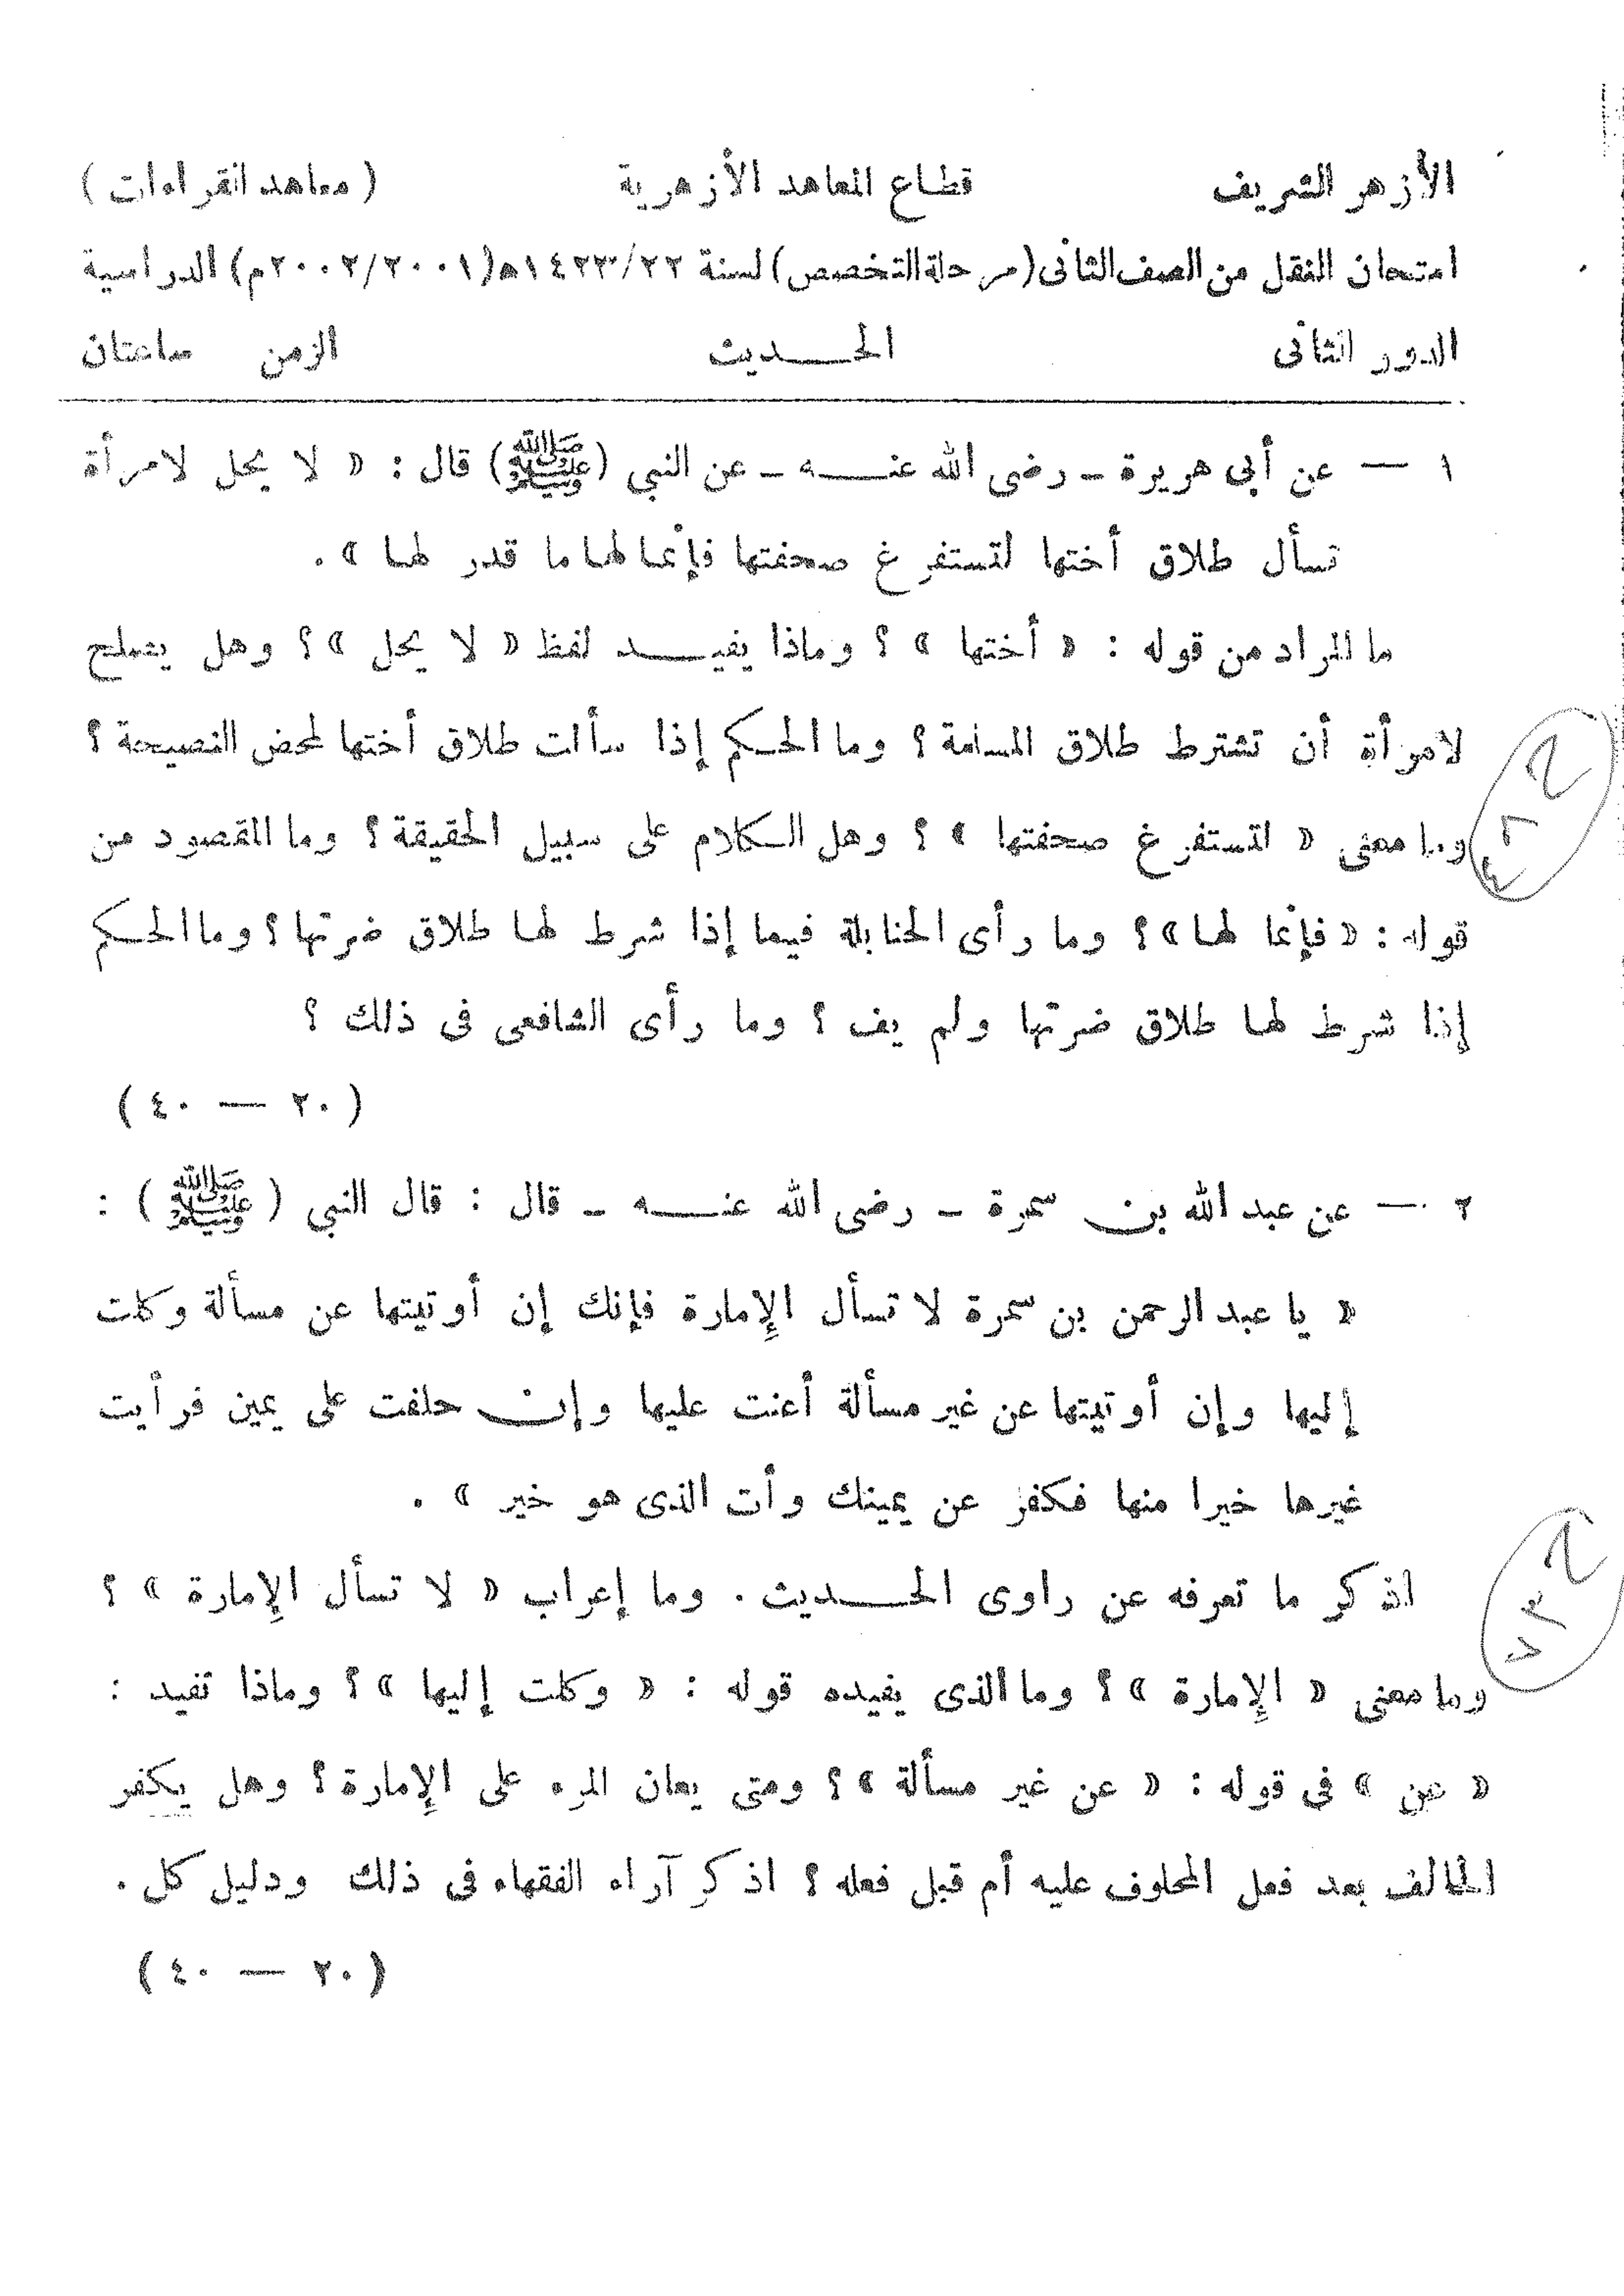 الأزهر الشريف قطاع المعاهد الأزهرية ( معاهد القراءات )
امتحان النقل من الصف الثانى (مرحلة التخصص) لسنة ١٤٢٣/٢٢ه (٢٠٠٢/٢٠٠١م) الدراسية
الدور الثانى الحـــديث الزمن ساعتان
١ — عن أبى هريرة – رضى الله عنـــه – عن النبى (ﷺ) قال : « لا يحل لامرأة
تسأل طلاق أختها لتستفرغ صحفتها فإنما لها ما قدر لها » .
ما المراد من قوله : « أختها » ؟ وماذا يفيـــد لفظ « لا يحل » ؟ وهل يصلح
لامرأة أن تشترط طلاق المسلمة ؟ وما الحكم إذا سألت طلاق أختها لمحض النصيحة ؟
وما معنى « لتستفرغ صحفتها » ؟ وهل الكلام على سبيل الحقيقة ؟ وما المقصود من
قوله : « فإنما لها » ؟ وما رأى الحنابلة فيما إذا شرط لها طلاق ضرتها ؟ وما الحكم
إذا شرط لها طلاق ضرتها ولم يف ؟ وما رأى الشافعى فى ذلك ؟
( ٢٠ — ٤٠ )
٢ — عن عبد الله بن سمرة – رضى الله عنـــه – قال : قال النبى ( ﷺ ) :
« يا عبد الرحمن بن سمرة لا تسأل الإمارة فإنك إن أوتيتها عن مسألة وكلت
إليها وإن أوتيتها عن غير مسألة أعنت عليها وإن حلفت على يمين فرأيت
غيرها خيرا منها فكفر عن يمينك وأت الذى هو خير » .
اذكر ما تعرفه عن راوى الحـــديث . وما إعراب « لا تسأل الإمارة » ؟
وما معنى « الإمارة » ؟ وما الذى يفيده قوله : « وكلت إليها » ؟ وماذا تفيد :
« عن » فى قوله : « عن غير مسألة » ؟ ومتى يعان المرء على الإمارة ؟ وهل يكفر
الحالف بعد فعل المحلوف عليه أم قبل فعله ؟ اذكر آراء الفقهاء فى ذلك ودليل كل .
( ٢٠ — ٤٠ )